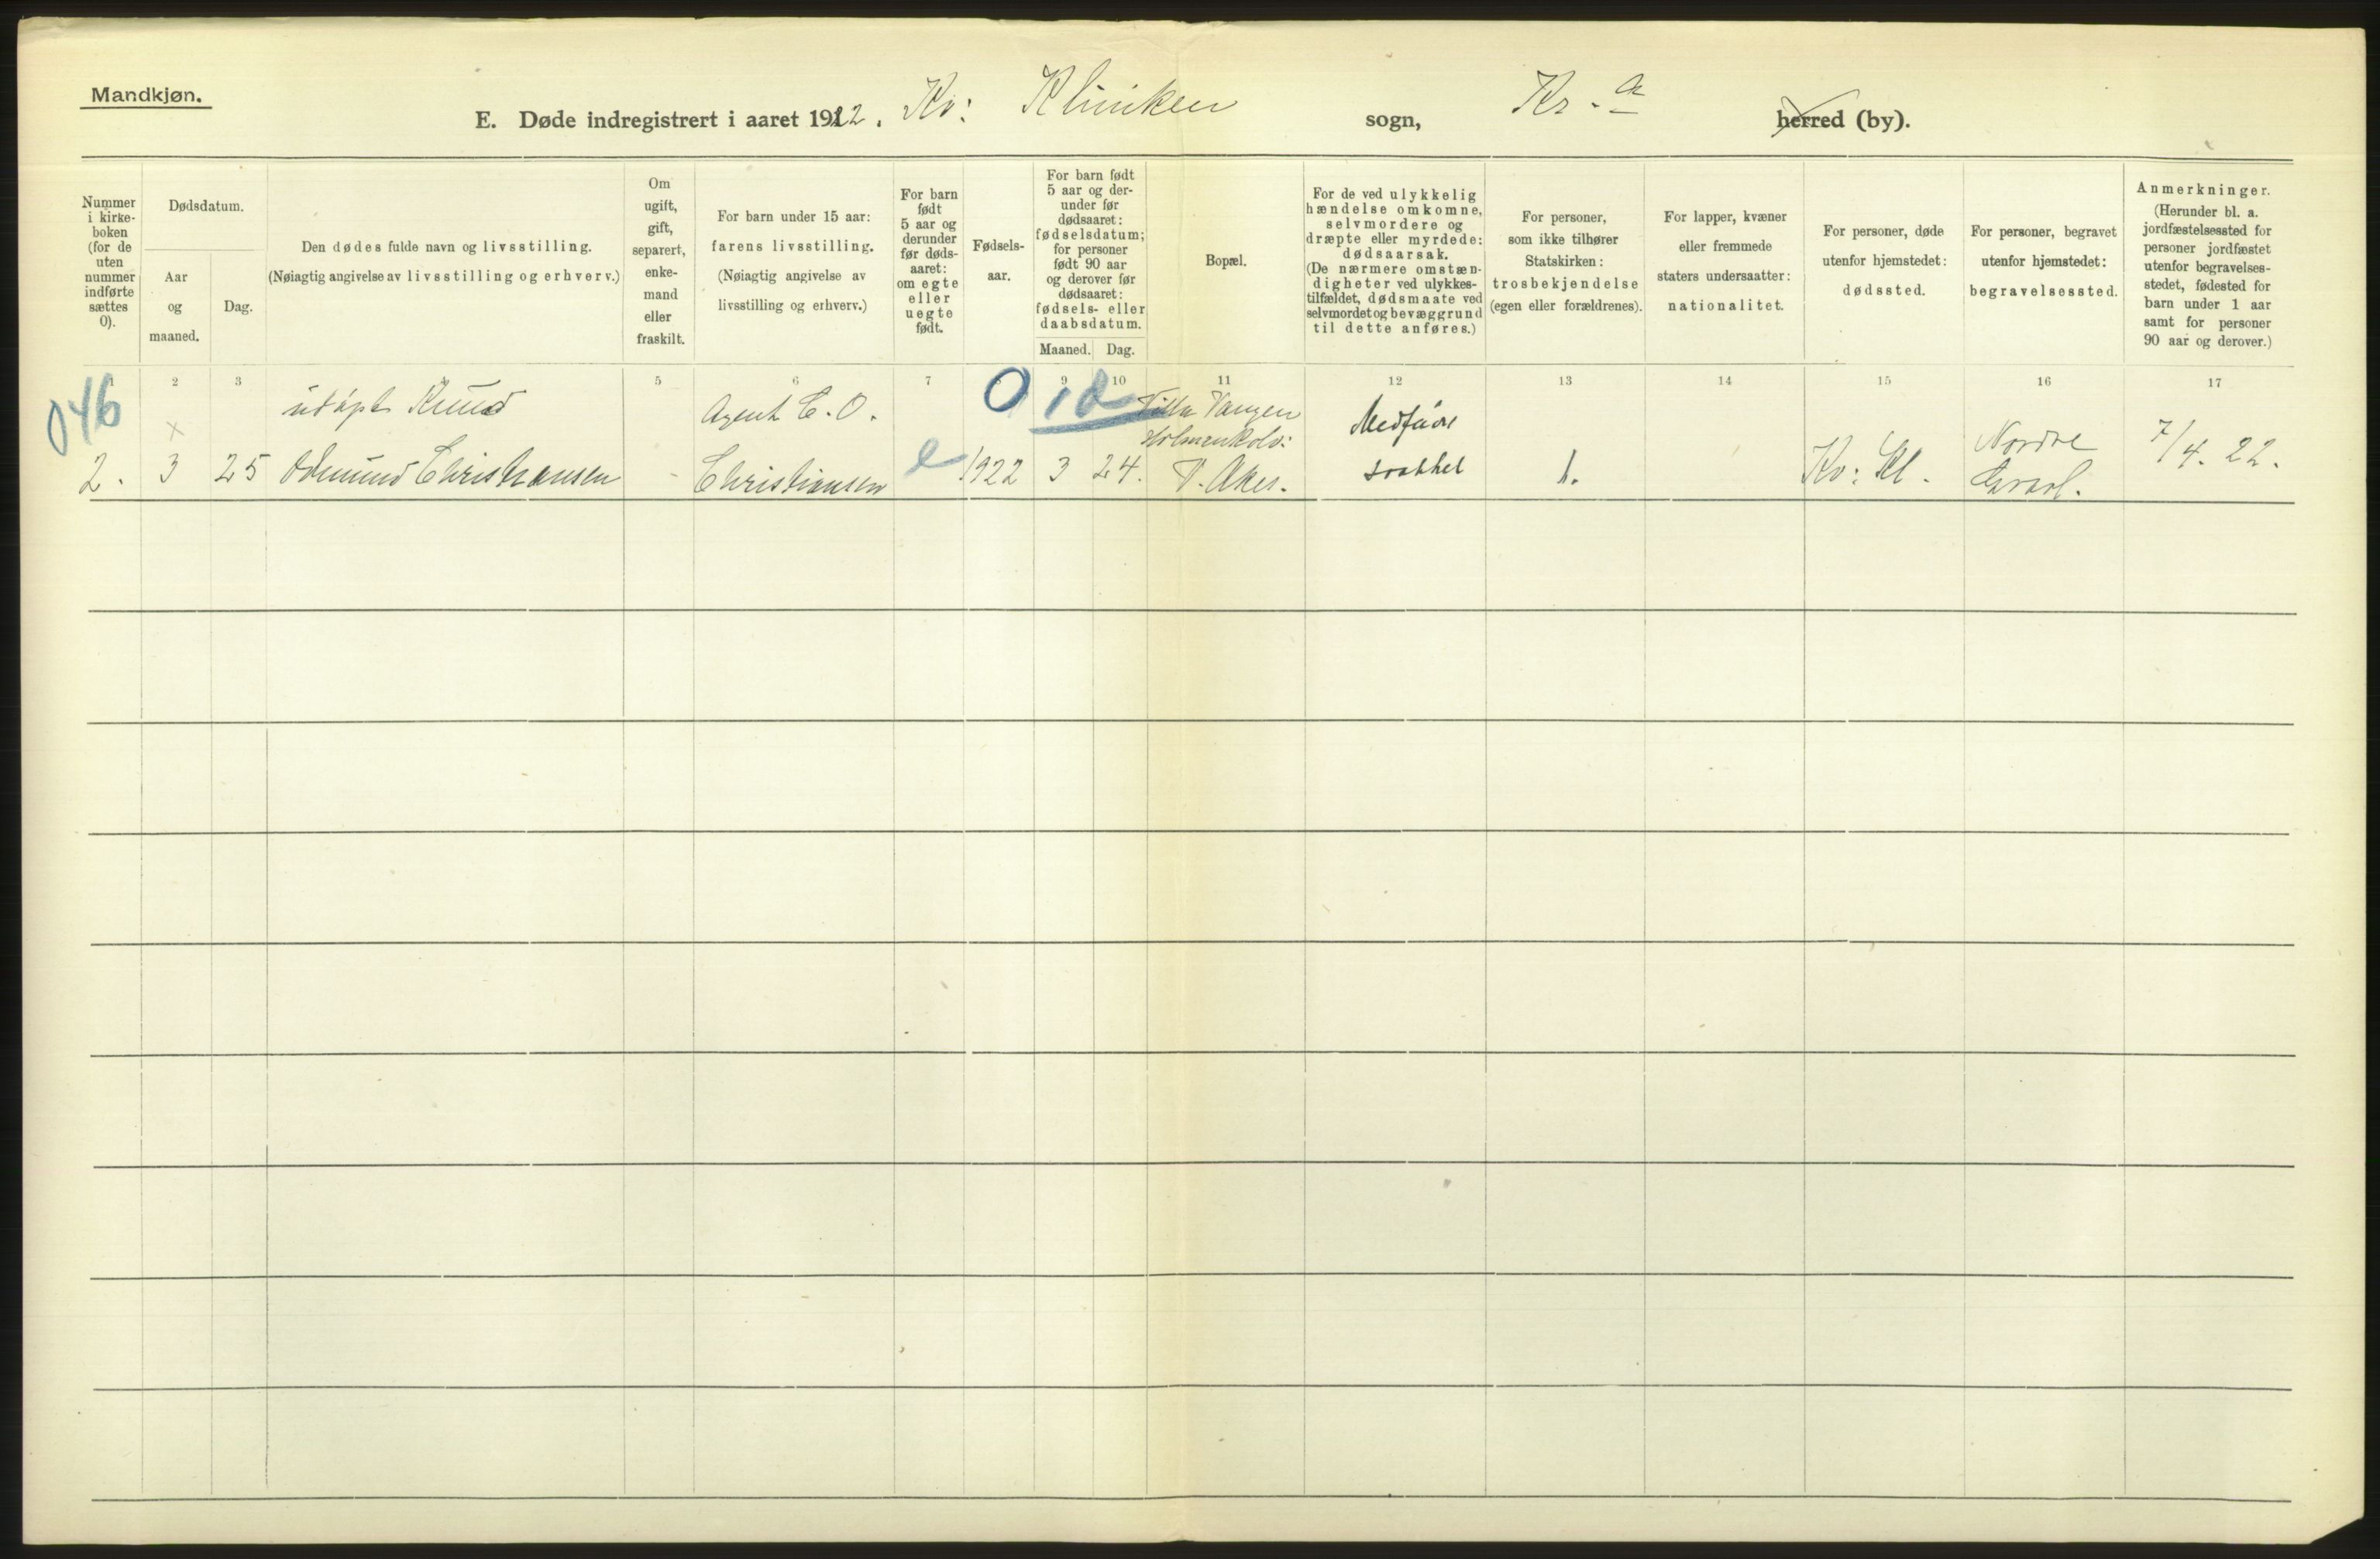 Mandkjøn.
E. Døde indregistrert i aaret 1922. Kv: Kliniken sogn, Kr.a herred (by).
Nummer
i kirke-
boken
(for de
uten
nummer
indførte
sættes
0).
Dødsdatum.
Aar
og
maaned.
Dag.
Den dødes fulde navn og livsstilling.
(Nøiagtig angivelse av livsstilling og erhverv.)
Om
ugift,
gift,
separert,
enke-
mand
eller
fraskilt.
For barn under 15 aar:
farens livsstilling.
(Nøiagtig angivelse av
livsstilling og erhverv.)
For barn
født
5 aar og
derunder
før døds-
aaret:
om egte
eller
uegte
født.
Fødsels-
aar.
For barn født
5 aar og der-
under før
dødsaaret:
fødselsdatum;
for personer
født 90 aar
og derover før
dødsaaret:
fødsels- eller
daabsdatum.
Maaned. Dag.
Bopæl.
For de ved ulykkelig
hændelse omkomne,
selvmordere og
dræpte eller myrdede:
dødsaarsak.
(De nærmere omstæn-
digheter ved ulykkes-
tilfældet, dødsmaate ved
selvmordet og bevæggrund
til dette anføres.)
For personer,
som ikke tilhører
Statskirken:
trosbekjendelse
(egen eller forældrenes).
For lapper, kvæner
eller fremmede
staters undersaatter:
nationalitet.
For personer, døde
utenfor hjemstedet:
dødssted.
For personer, begravet
utenfor hjemstedet:
begravelsessted.
Anmerkninger.
(Herunder bl. a.
jordfæstelsessted for
personer jordfæstet
utenfor begravelses-
stedet, fødested for
barn under 1 aar
samt for personer
90 aar og derover.)
1 2 3 5 6 7 9 10 11 12 13 14 15 16 17
046
utøpt Knud
Agent C. O.
0 10
Villa Vangen
Holmenkolv:
Medfødt
Nordre
2. 3 25 Odmund Christiansen - Christiansen e 1922 3 24. V. Aker. svakhet 1. Kv: Kl. Gravl. 7/4. 22.